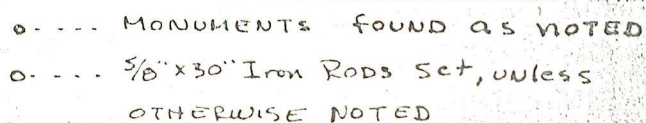 o.... MONUMENTS FOUND AS NOTED
o.... 5/8"x30" Iron RODS Set, UNLess
OTHERWISE NOTED